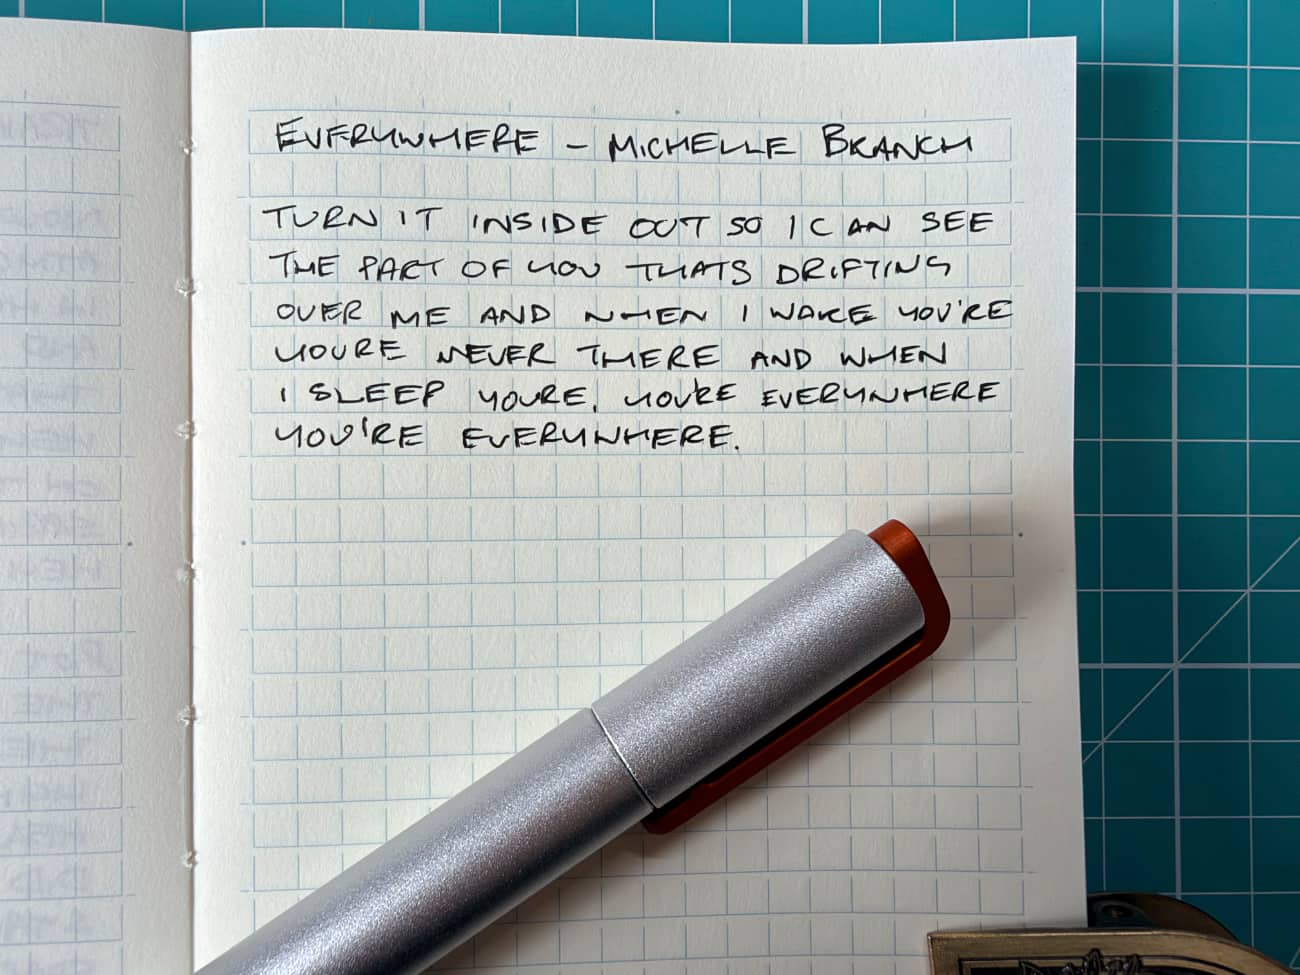 EVERYWHERE – MICHELLE BRANCH
TURN IT INSIDE OUT SO I CAN SEE
THE PART OF YOU THATS DRIFTING
OVER ME AND WHEN I WAKE YOU'RE
YOURE NEVER THERE AND WHEN
I SLEEP YOURE, YOU'RE EVERYWHERE
YOU'RE EVERYWHERE.